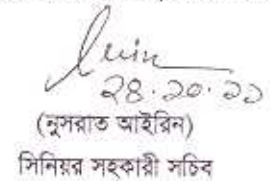 ২৪.১০.১১
(নুসরাত আইরিন)
সিনিয়র সহকারী সচিব